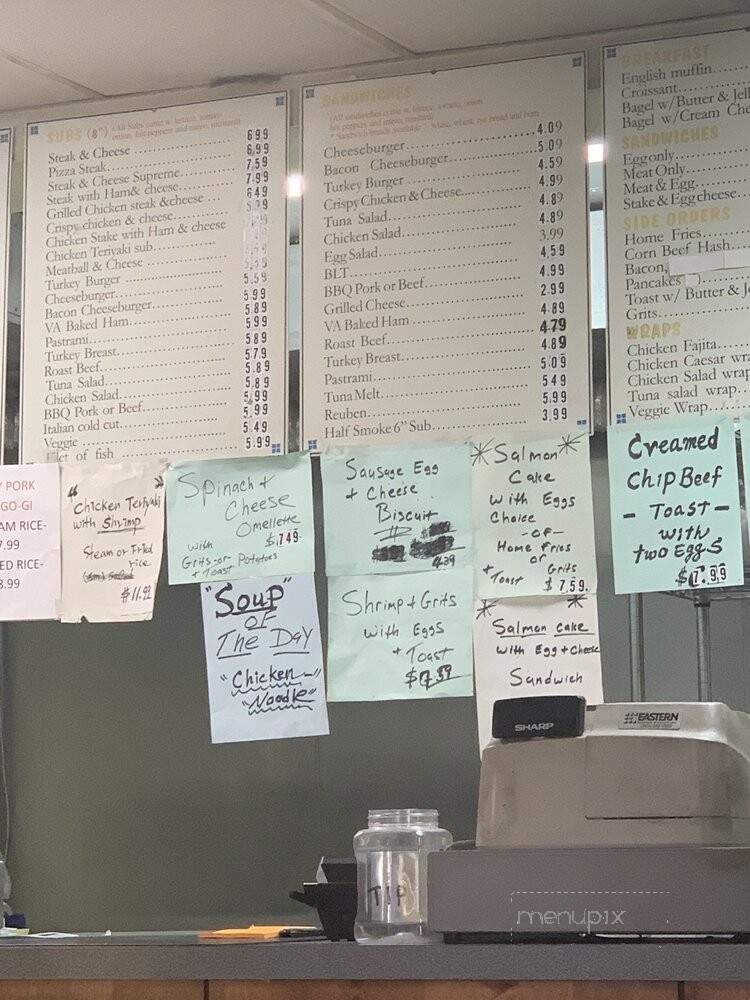 SUBS (8")
(All Subs come w. lettuce, tomato
onion, hot peppers and mayo, mustard)
Steak & Cheese 6.99
Pizza Steak 6,99
Steak & Cheese Supreme 7,59
Steak with Ham& cheese 7,99
Grilled Chicken steak &cheese 6.49
Crispy chicken & cheese
Chicken Stake with Ham & cheese
Chicken Teriyaki sub
Meatball & Cheese
Turkey Burger 5.59
Cheeseburger 5.99
Bacon Cheeseburger 5.89
VA Baked Ham 5.99
Pastrami 5.89
Turkey Breast 5.79
Roast Beef 5.89
Tuna Salad 5.89
Chicken Salad 5.99
BBQ Pork or Beef 5.99
Italian cold cut 5.49
Veggie 5.99
of fish
SANDWICHES
(All sandwiches come w. lettuce, tomato, onion
hot peppers and mayo, mustard)
Cheeseburger 4.09
Bacon Cheeseburger 5.09
Turkey Burger 4.59
Crispy Chicken & Cheese 4.99
Tuna Salad 4.89
Chicken Salad 4.89
Egg Salad 3.99
BLT 4,59
BBQ Pork or Beef 4.99
Grilled Cheese 2.99
VA Baked Ham 4.89
Roast Beef 4.79
Turkey Breast 4.89
Pastrami 5.09
Tuna Melt 5.49
Reuben 5.99
Half Smoke 6" Sub 3.99
BREAKFAST
English muffin
Croissant
Bagel w/Butter & Jell
Bagel w/Cream Che
SANDWICHES
Egg only
Meat Only
Meat & Egg
Stake & Egg cheese
SIDE ORDERS
Home Fries
Corn Beef Hash
Bacon,
Pancakes
Toast w/ Butter & Je
Grits
WRAPS
Chicken Fajita
Chicken Caesar wra
Chicken Salad wrap
Tuna salad wrap
Veggie Wrap
Y PORK
GO-GI
AM RICE-
7.99
ED RICE-
8.99
"Chicken Teriyaki
with Shrimp
Steam or Fried
rice
$11.99
Spinach +
Cheese
Omellette
with $7.49
Grits-or Potatoes
+ Toast
"Soup"
OF
The Day
"Chicken"
"Noodle"
Sausage Egg
+ Cheese
Biscuit
4.39
Shrimp + Grits
with Eggs
+ Toast
$7.59
Salmon
Cake
with Eggs
Choice
-OF-
Home fries
or
Grits
+ Toast $7.59
Salmon cake
with Egg + Cheese
Sandwich
Creamed
Chip Beef
- Toast -
with
two Eggs
$7.99
SHARP
EASTERN
TIP
menupix